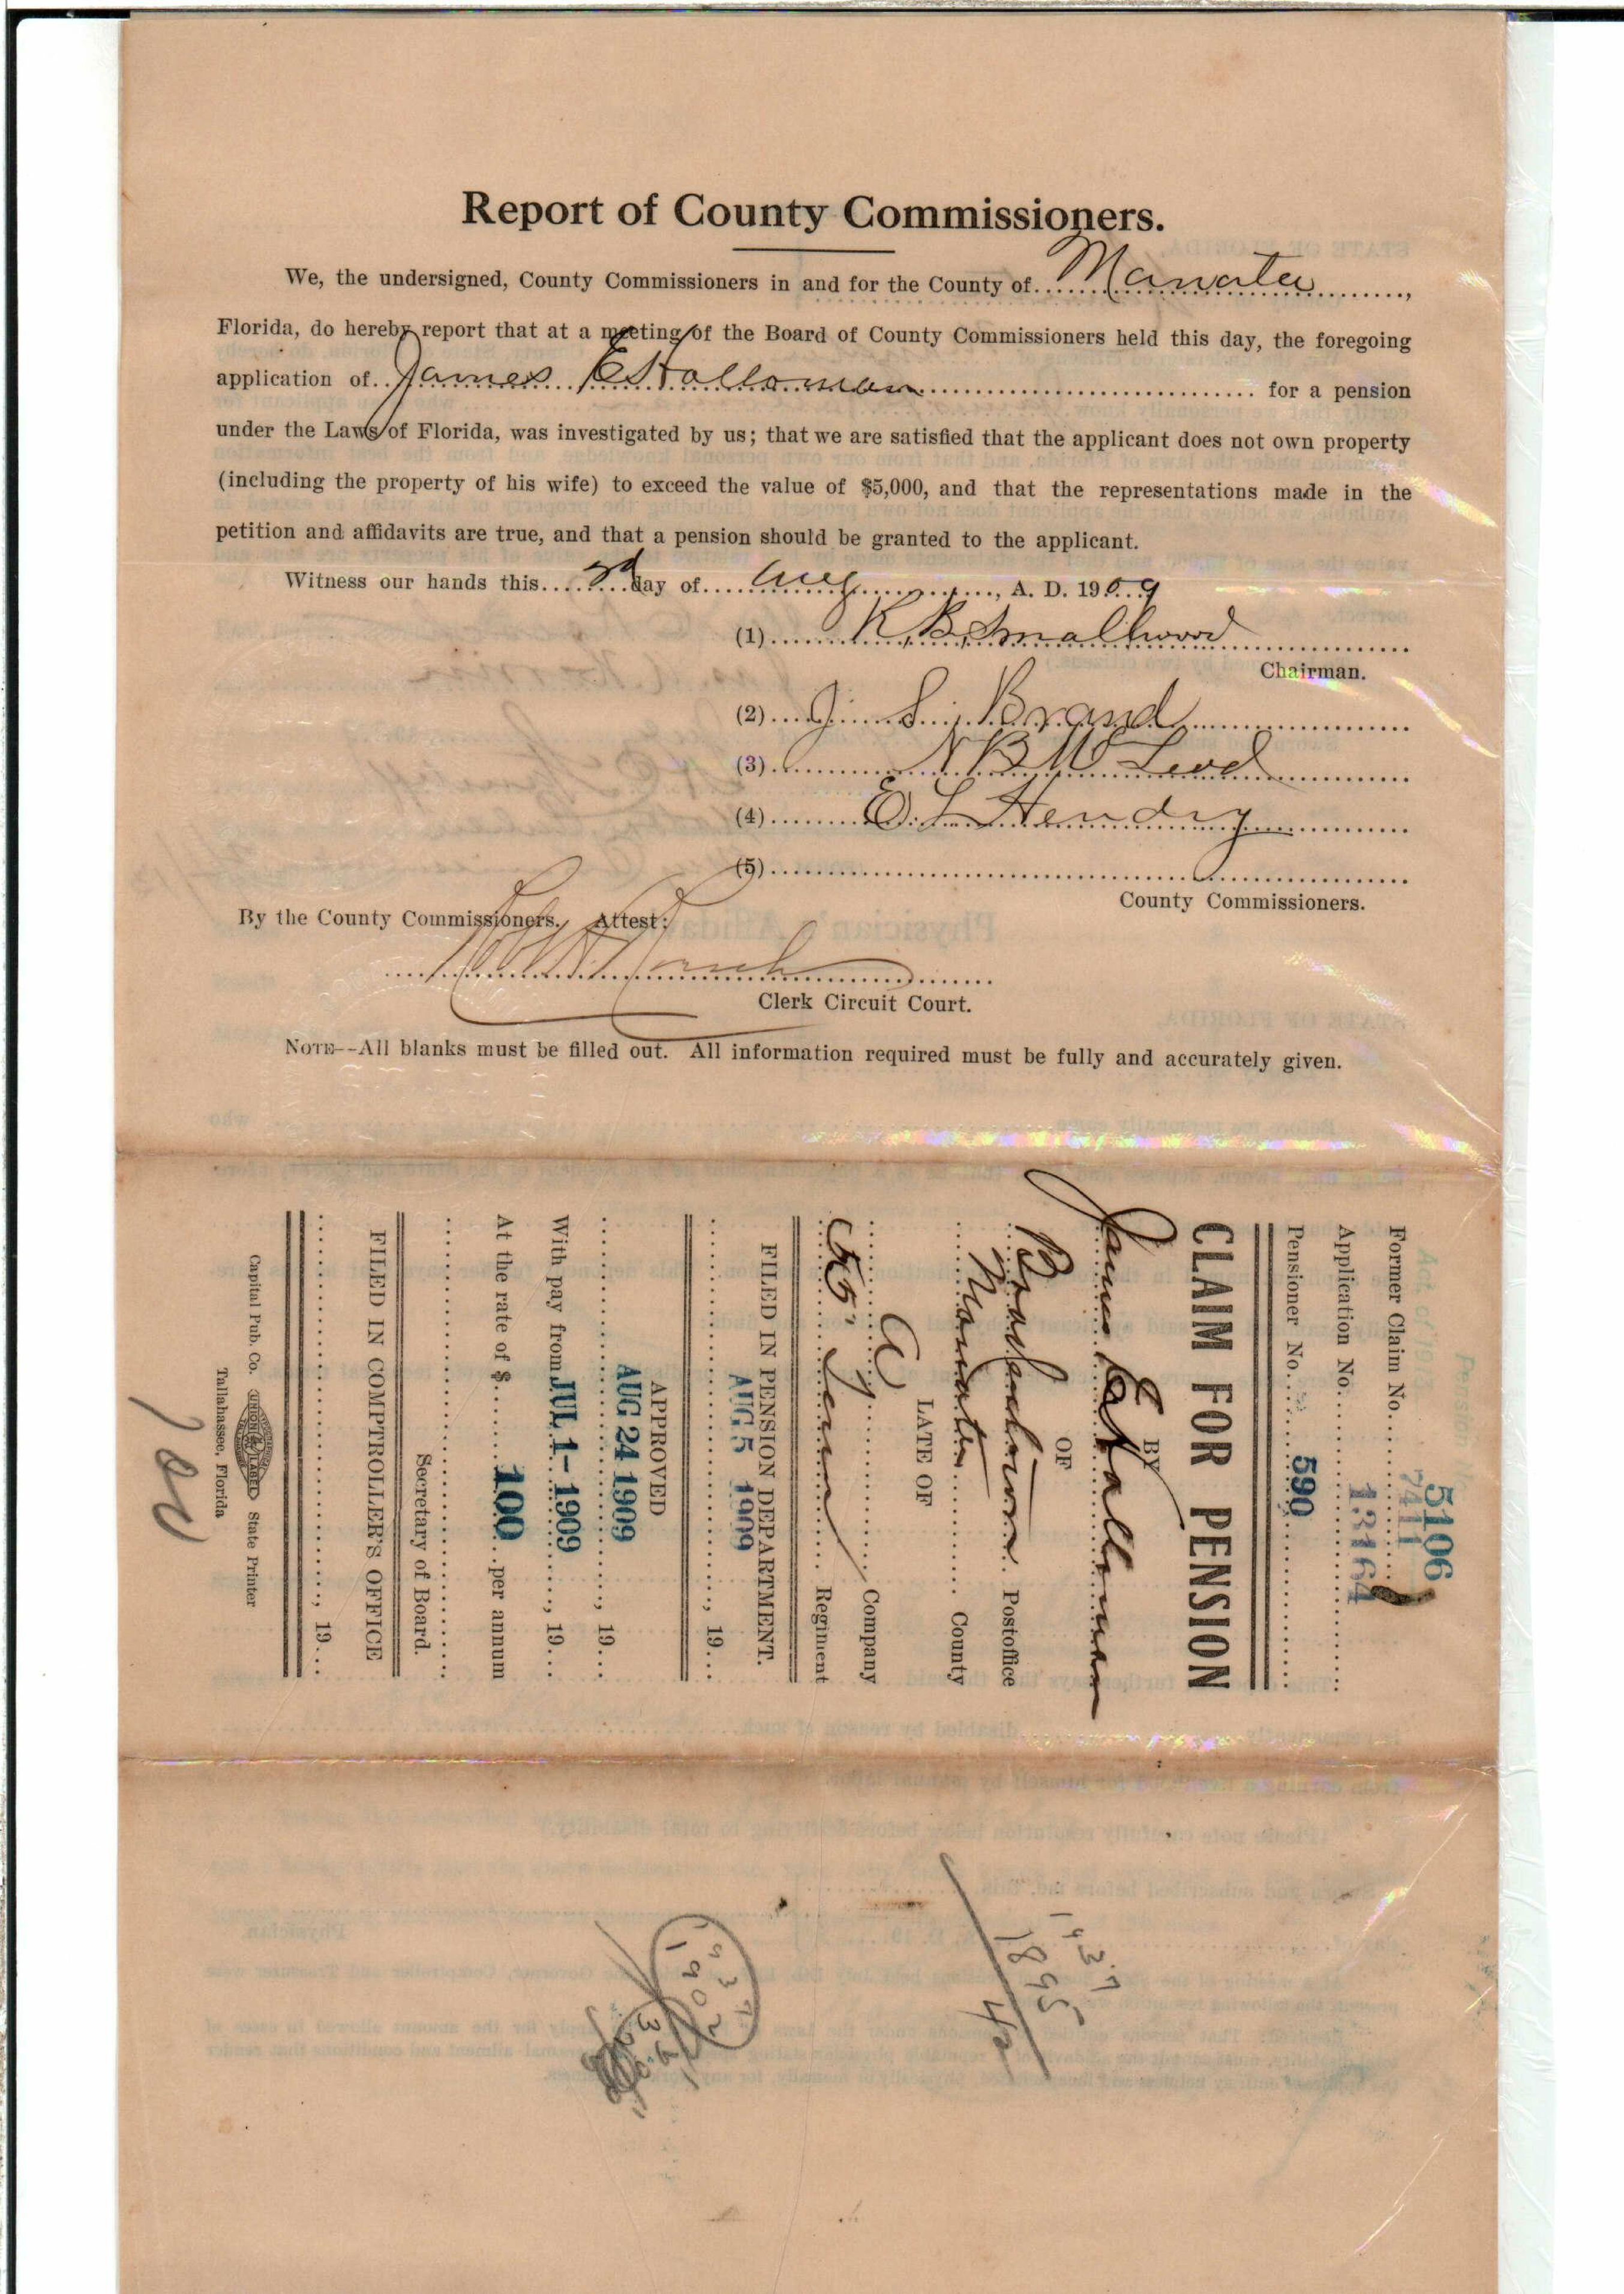 Report of County Commissioners.
We, the undersigned, County Commissioners in and for the County of Manatee,
Florida, do hereby report that at a meeting of the Board of County Commissioners held this day, the foregoing
application of James E Holloman for a pension
under the Laws of Florida, was investigated by us; that we are satisfied that the applicant does not own property
(including the property of his wife) to exceed the value of $5,000, and that the representations made in the
petition and affidavits are true, and that a pension should be granted to the applicant.
Witness our hands this 3d day of Aug, A. D. 1909
(1) K. B. Smallwood
Chairman.
(2) J. S. Brand
(3) N B McLeod
(4) E. L Hendry
(5)
County Commissioners.
By the County Commissioners. Attest:
Clerk Circuit Court.
NOTE--All blanks must be filled out. All information required must be fully and accurately given.
Act of 1913
Pension
5106
Former Claim No. 7411
Application No. 13164
Pensioner No. 590
CLAIM FOR PENSION
BY
James E Holloman
OF
Bradentown Postoffice
Manatee County
LATE OF
A Company
55, Tenn Regiment
FILED IN PENSION DEPARTMENT.
AUG 5 1909, 19
APPROVED
AUG 24 1909, 19
With pay from JUL 1-1909, 19
At the rate of $ 100 per annum
Secretary of Board.
FILED IN COMPTROLLER'S OFFICE
, 19
Capital Pub. Co. UNION LABEL State Printer
Tallahassee, Florida
1937
1895
42